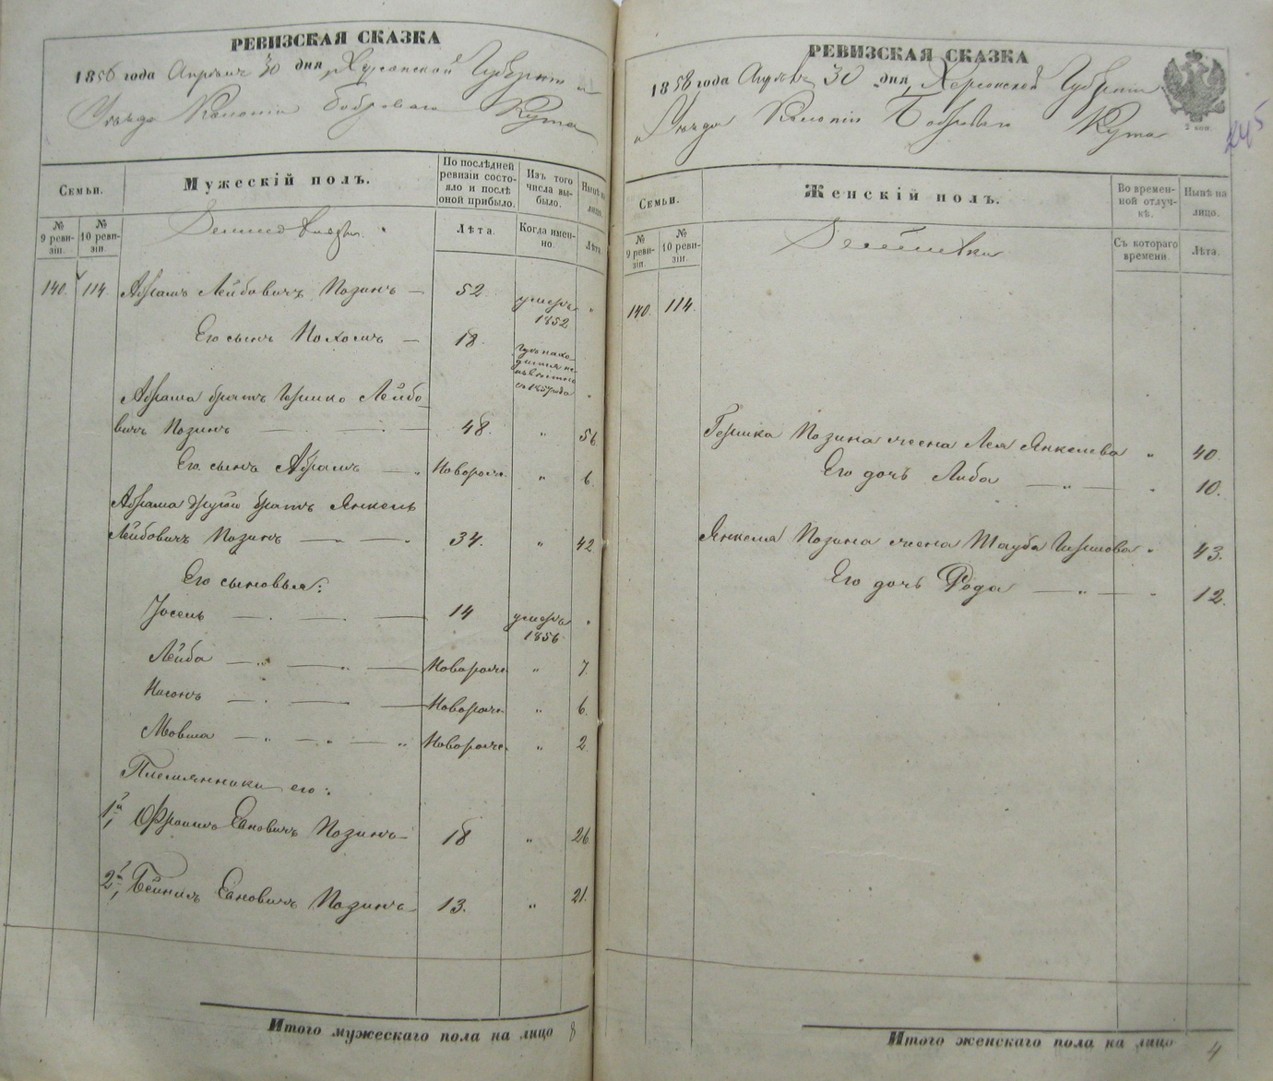 РЕВИЗСКАЯ СКАЗКА
1858 года Апреля 30 дня, Херсонской Губернии и
Уезда Колонии Боброваго Кута
Семьи.
№ 9 ревизіи.
№ 10 ревизіи.
Мужескій полъ.
По послѣдней ревизіи состояло и послѣ оной прибыло.
Изъ того числа выбыло.
Нынѣ на лицо.
Лѣта.
Когда именно.
Лѣта.
140. 114. Абрамъ Лейбовичъ Позинъ — 52. умеръ 1852 "
Его сынъ Нохомъ — 18.
Абрама братъ Гершко Лейбо-
вичъ Позинъ — 48. " 56
Его сынъ Абрамъ — Новорожд. " 6.
Абрама другой братъ Янкель
Лейбовичъ Позинъ — " — 34. " 42
Его сыновья:
Іосель — 14 умеръ 1856 "
Лейба — " — Новорожд. " 7.
— Новорожд. " 6.
Мовша — " — Новорожд. " 2.
Племянники его:
1й Фроимъ Евновичъ Позинъ 18 " 26
2й Бейнишъ Евновичъ Позинъ 13. " 21.
Итого мужескаго пола на лицо 8
РЕВИЗСКАЯ СКАЗКА
1858 года Апреля 30 дня, Херсонской Губернии
и Уезда Колонии Боброваго Кута
2 коп.
245
Семьи.
№ 9 ревизіи.
№ 10 ревизіи.
Женскій полъ.
Во временной отлучкѣ.
Нынѣ на лицо.
Съ котораго времени.
Лѣта.
140. 114.
Гершка Позина жена Лея Янкелева " 40.
Его дочь Либа — " — " 10.
Янкеля Позина жена Тауба Гершова " 43.
Его дочь — " — " 12.
Итого женскаго пола на лицо 4